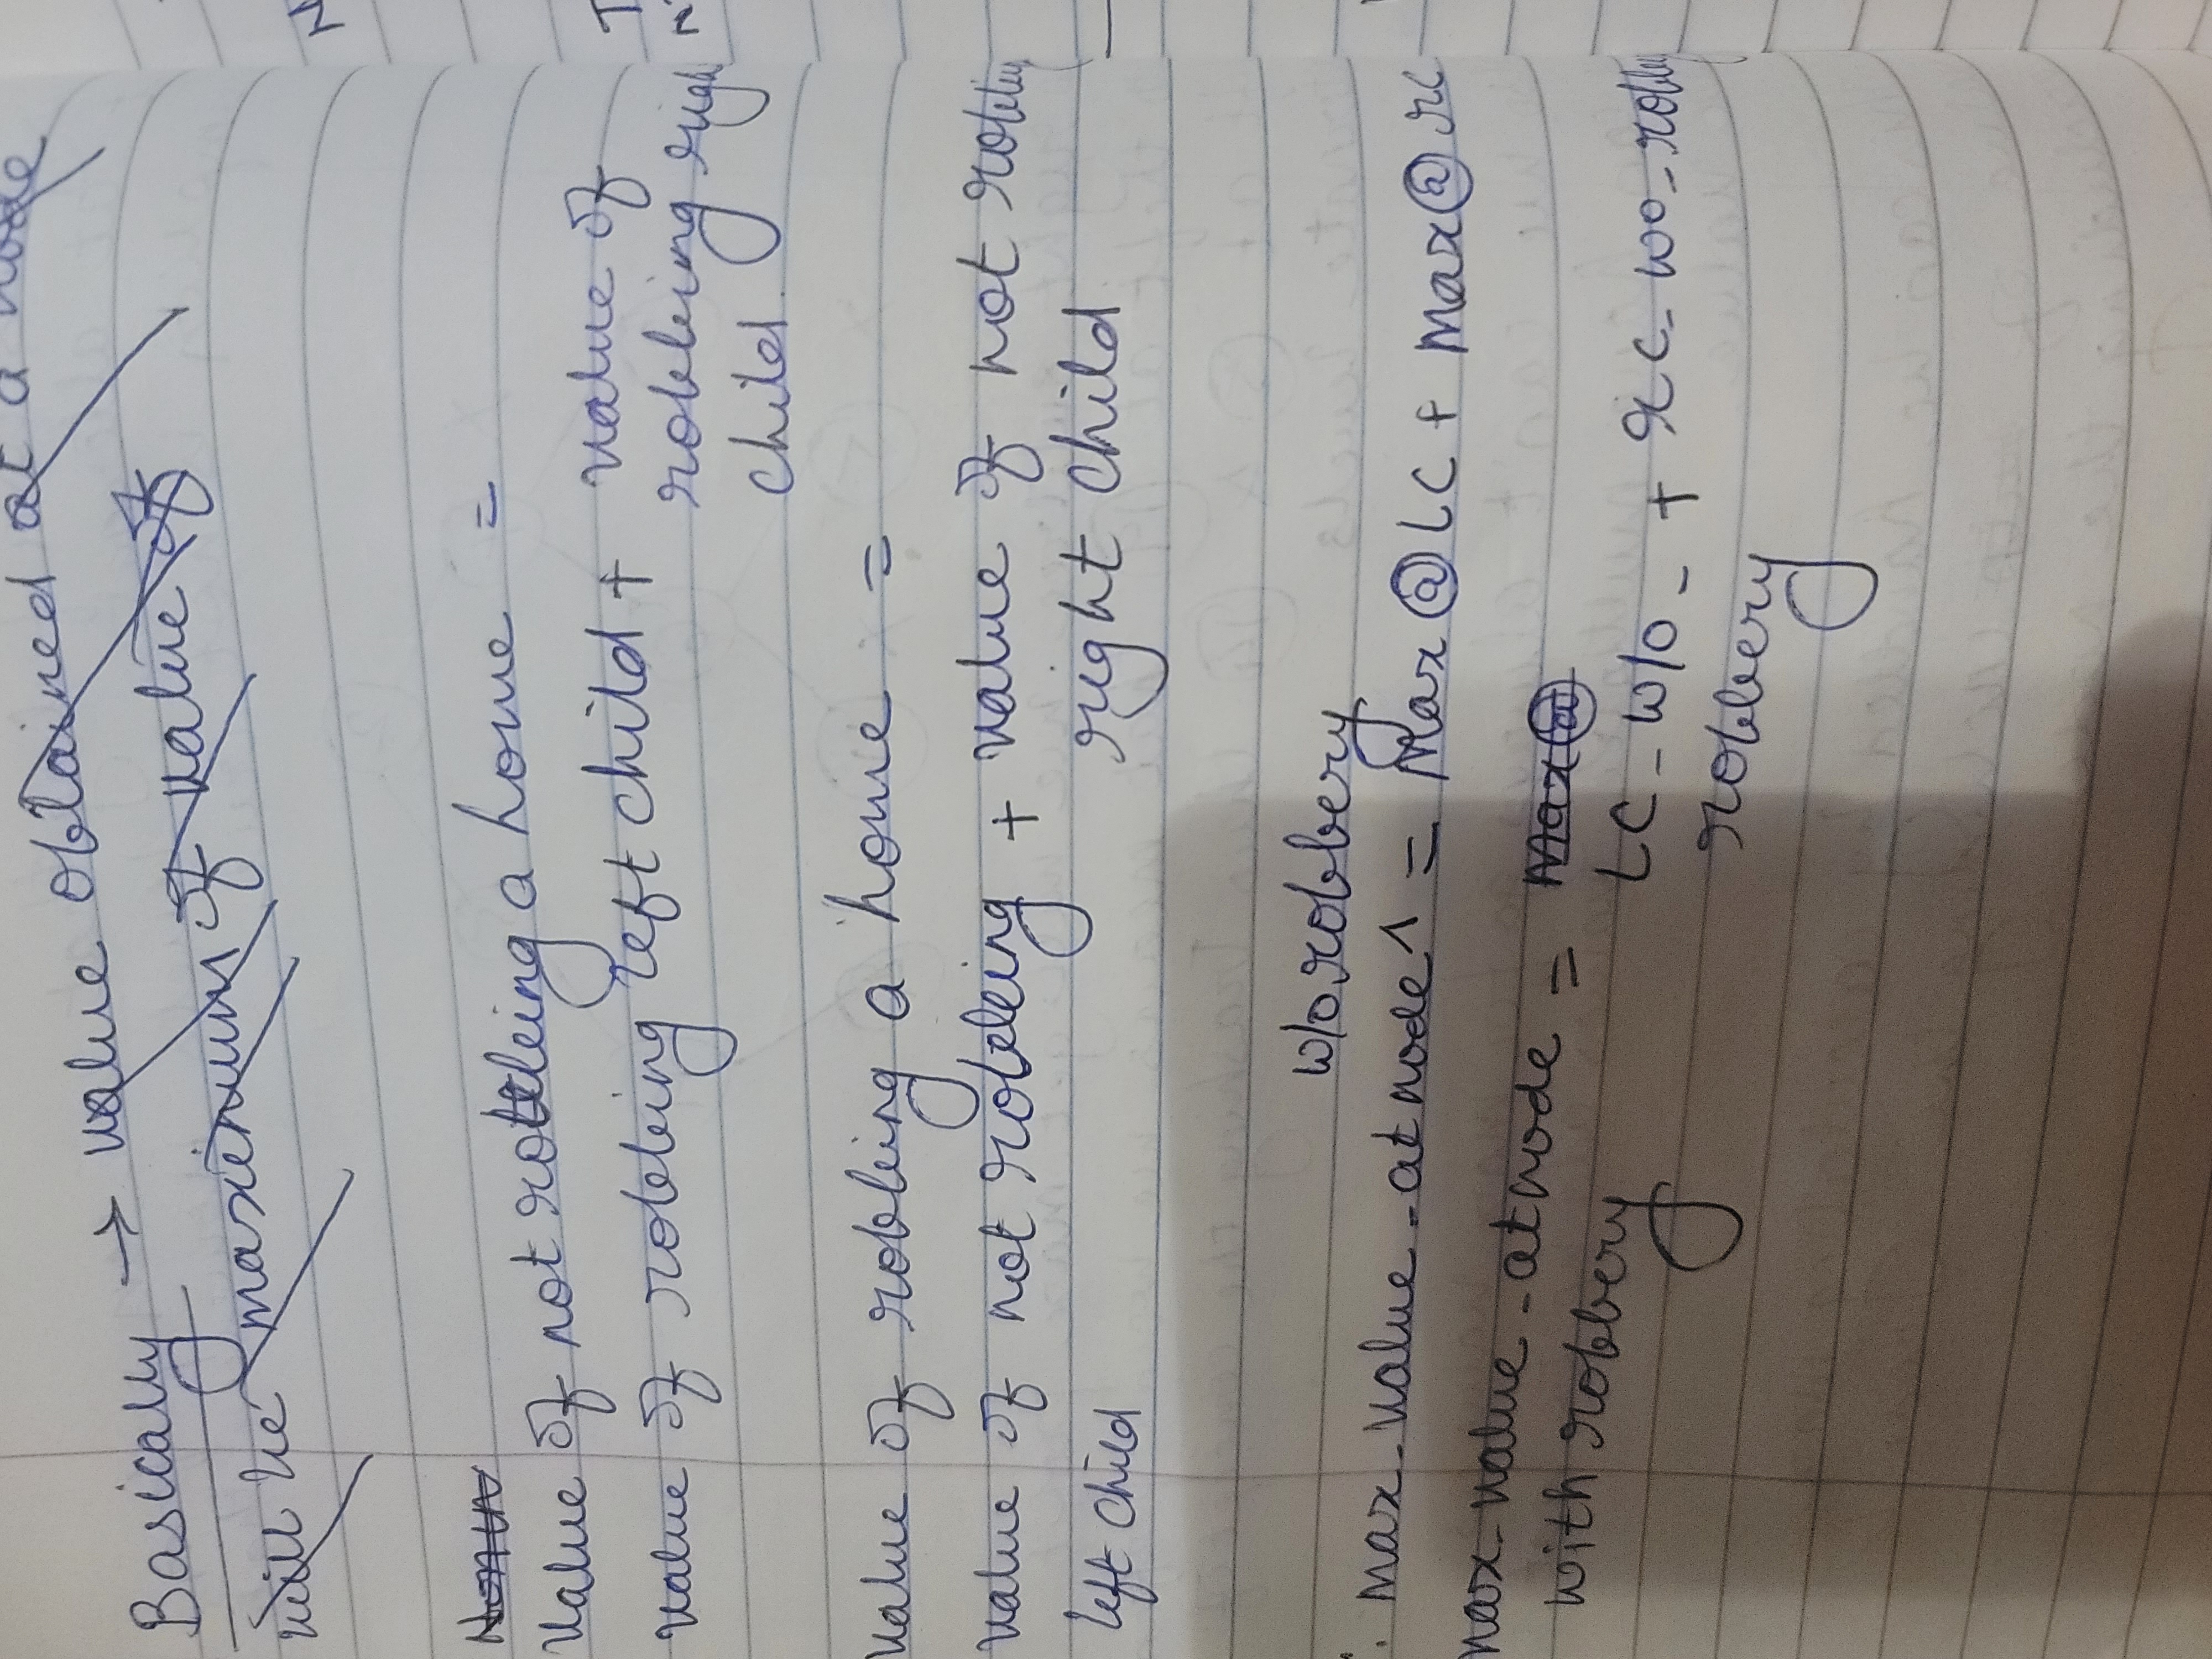 Basically → value obtained at a node
will be maximum of value of
Value of not robbing a home =
value of robbing left child + value of
robbing righ
child.
value of robbing a home =
value of not robbing + value of not robbing
left child right child
w/o robbery
∴ max_value_atnode^ = Max @ LC + Max @ RC
max_value_atnode = Max @
with robbery
LC_w/o_ + RC_wo_robbe
robbery